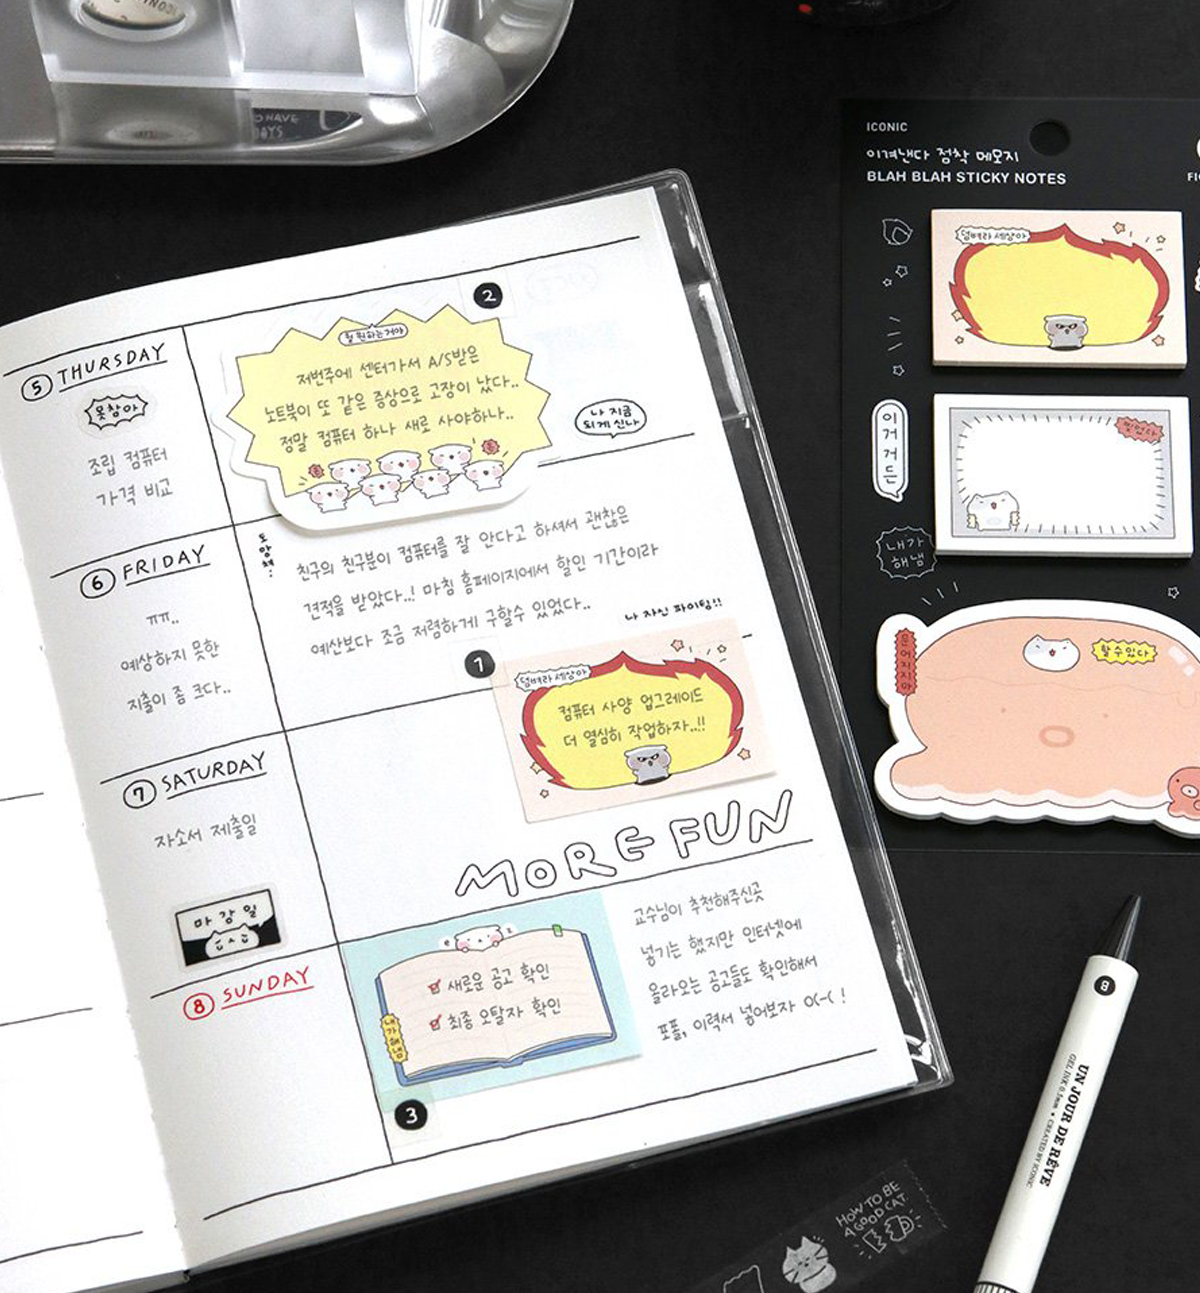 5 THURSDAY
못참아
조립 컴퓨터
가격 비교
2
뭘 원하는거야
저번주에 센터가서 A/S받은
노트북이 또 같은 증상으로 고장이 났다..
정말 컴퓨터 하나 새로 사야하나..
나 지금
되게 신나
6 FRIDAY
ㅠㅠ..
예상하지 못한
지출이 좀 크다..
친구의 친구분이 컴퓨터를 잘 안다고 하셔서 괜찮은
견적을 받았다..! 마침 홈페이지에서 할인 기간이라
예산보다 조금 저렴하게 구할수 있었다..
나 자신 파이팅!!
7 SATURDAY
자소서 제출일
마감일
1
덤벼라 세상아
컴퓨터 사양 업그레이드
더 열심히 작업하자..!!
MORE FUN
8 SUNDAY
새로운 공고 확인
최종 오탈자 확인
내가해냄
3
교수님이 추천해주신곳
넣기는 했지만 인터넷에
올라오는 공고들도 확인해서
포폴, 이력서 넣어보자 O(-( !
ICONIC
이겨낸다 점착 메모지
BLAH BLAH STICKY NOTES
덤벼라 세상아
찢었다
이거거든
내가
해냄
문어지지마
할수있다
8
UN JOUR DE RÊVE
GEL INK 0.5mm • CREATED BY ICONIC
HOW TO BE
A GOOD CAT